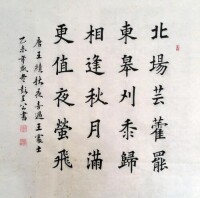 北場芸藿罷
東皋刈黍歸
相逢秋月滿
更值夜螢飛
唐王績秋夜喜遇王處士
書